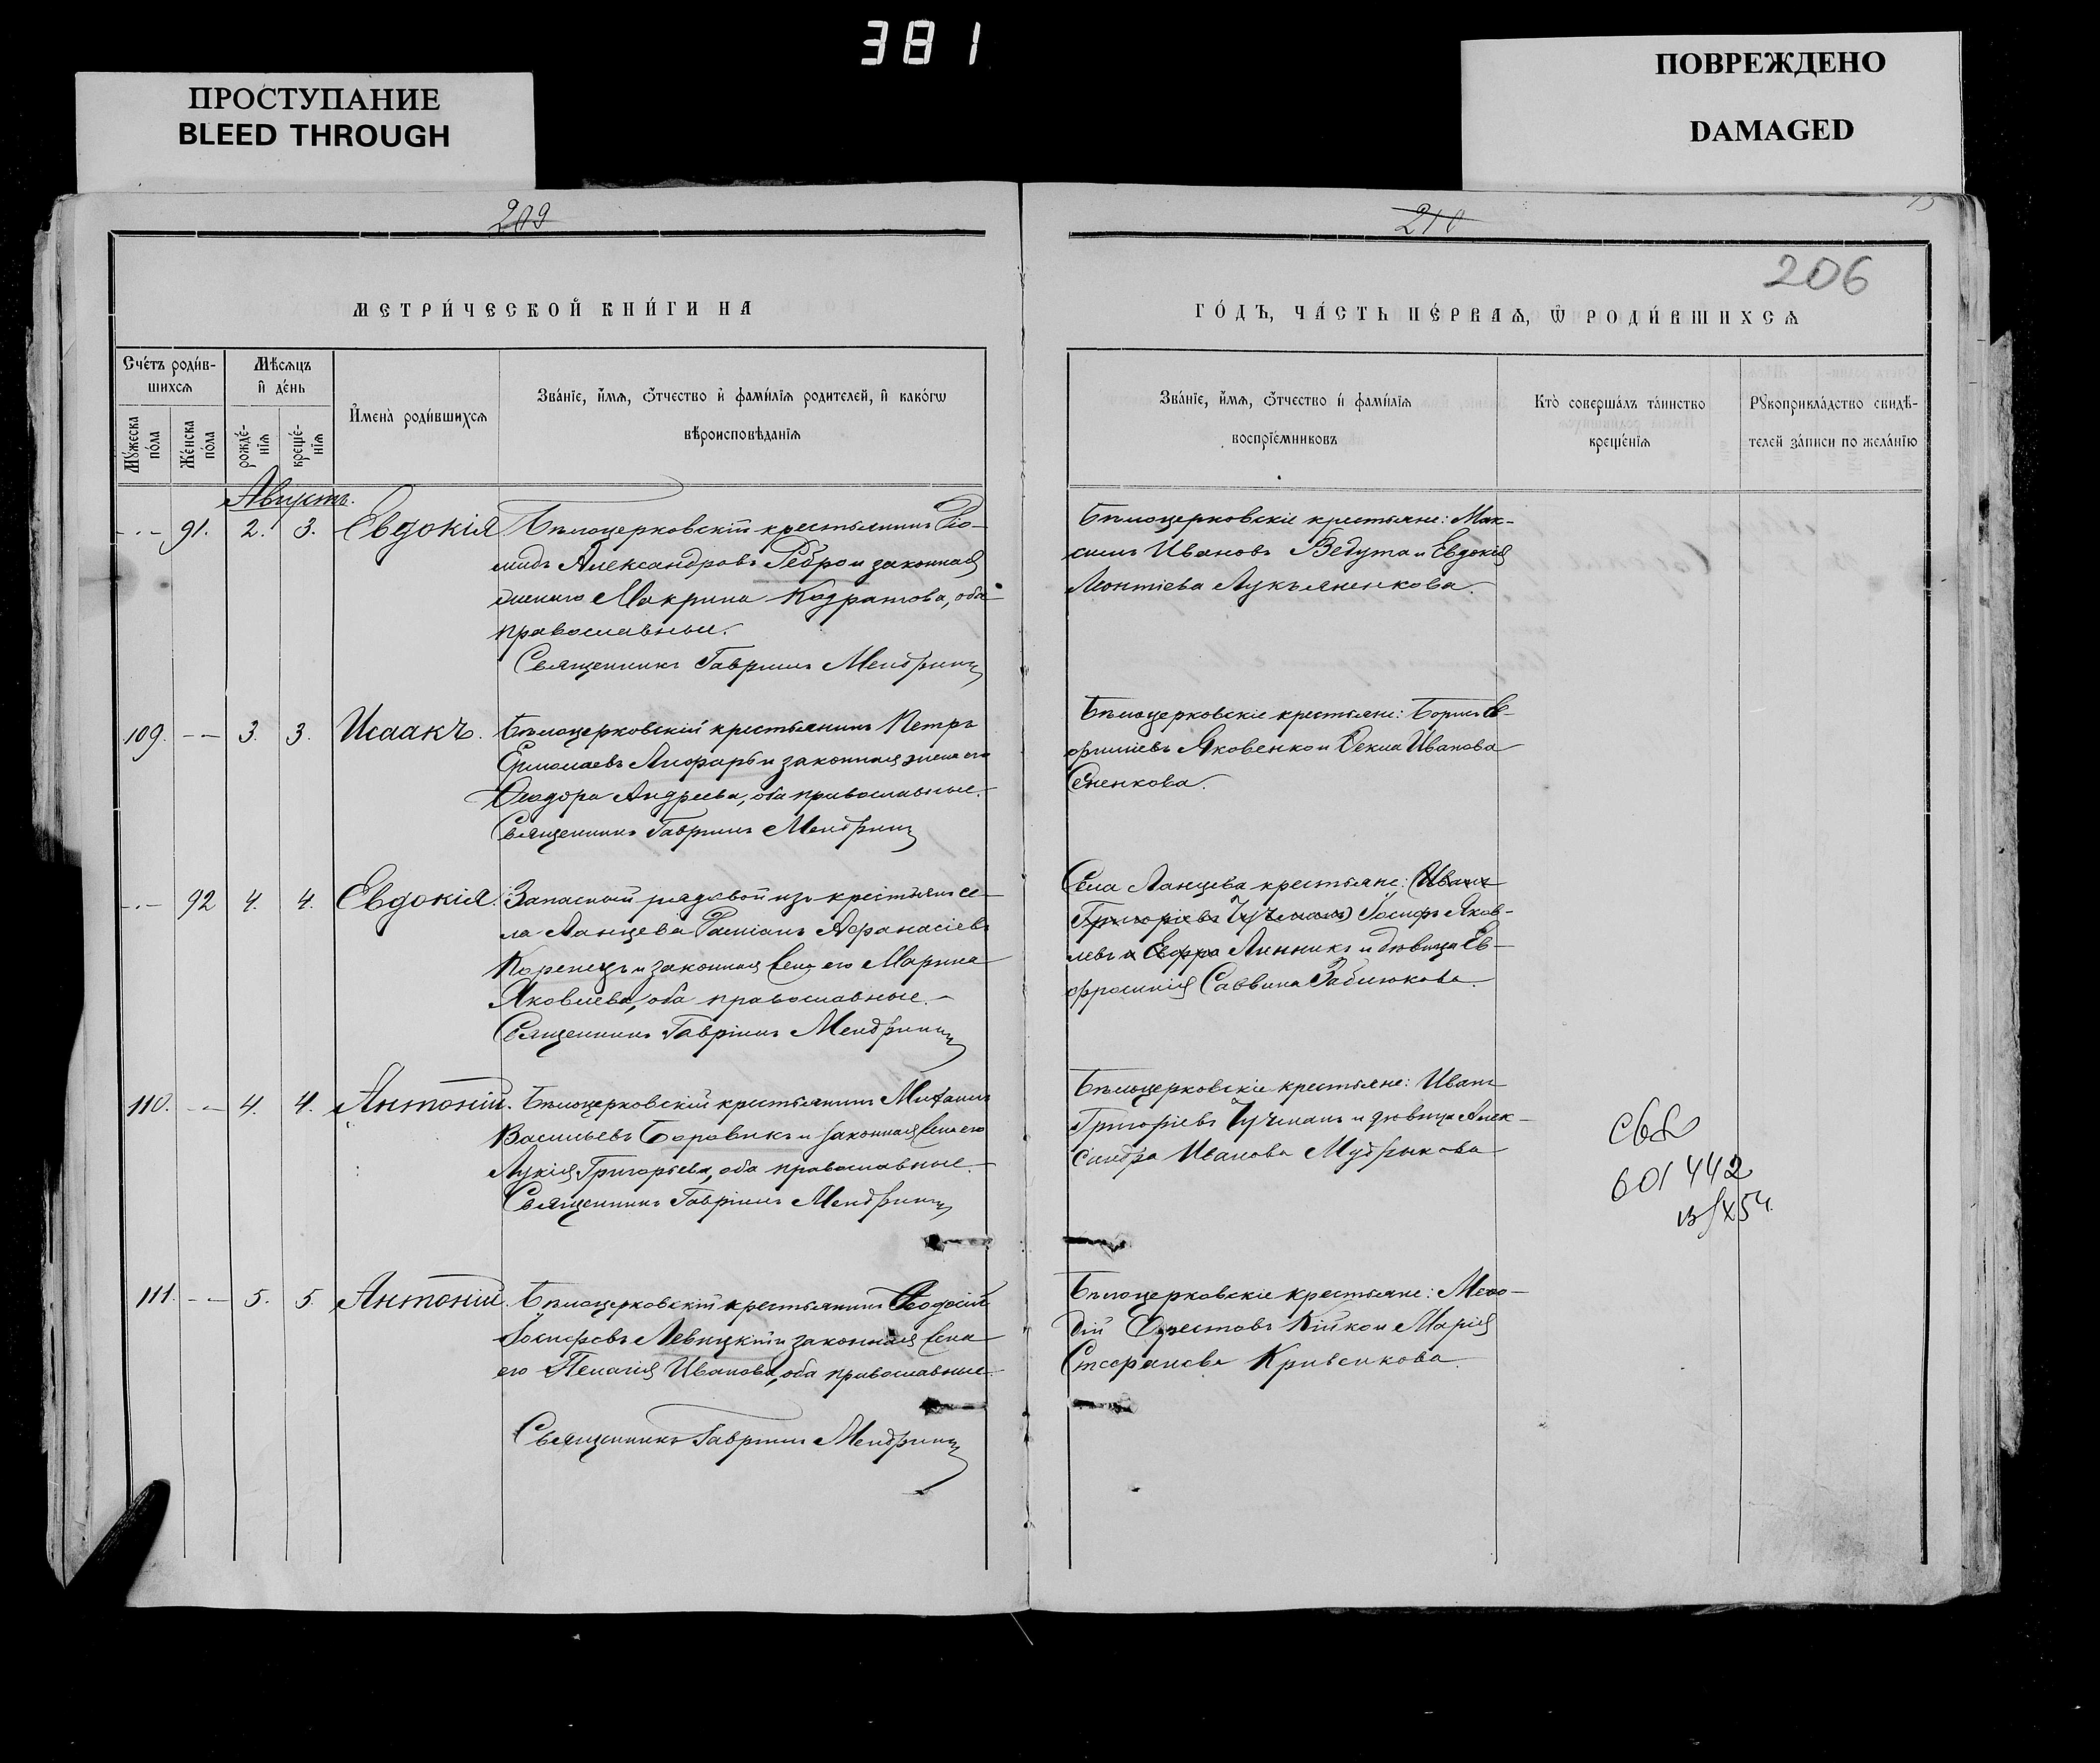 381
ПРОСТУПАНИЕ
BLEED THROUGH
ПОВРЕЖДЕНО
DAMAGED
209
МЕТРИ́ЧЕСКОЙ КНИ́ГИ НА
Сче́тъ роди́в-
шихсѧ
Мѣ́сѧцъ
и҆ де́нь
Мꙋ́жеска
по́ла
Же́нска
по́ла
рожде́-
нїѧ
креще́-
нїѧ
И҆мена̀ роди́вшихсѧ
Зва́нїе, и҆́мѧ, ѻ҆́тчество и҆ фами́лїѧ родителей, и҆ како́гѡ
вѣроисповѣ́данїѧ
Августъ.
91. 2. 3. Евдокія Бѣлоцерковскій крестьянинъ Діо-
мидъ Александровъ Ребро и законная
жена его Макрина Кодратова, оба
православные.
Священникъ Гавріилъ Мендрин
109. 3. 3. Исаакъ. Бѣлоцерковскій крестьянинъ Петръ
Ермолаевъ и законная жена его
Ѳеодора Андреева, оба православные.
Священникъ Гавріилъ Мендрин
92 4. 4. Евдокія. Запасный рядовой изъ крестьянъ се-
ла Ланцева Даміанъ Аѳанасіевъ
Коренецъ и законная жена его Марина
Яковлева, оба православные.
Священникъ Гавріилъ Мендрин
110. 4. 4. Антоній. Бѣлоцерковскій крестьянинъ Михаилъ
Васильевъ Боровикъ и законная жена его
Лукія Григорьева, оба православные.
Священникъ Гавріилъ Мендрин
111. 5. 5. Антоній. Бѣлоцерковскій крестьянинъ Ѳеодосій
Іосифовъ Левицкій и законная жена
его Пелагія Иванова, оба православные.
Священникъ Гавріилъ Мендрин
210
206
ГО́ДЪ, ЧА́СТЬ ПЕ́РВАѦ, Ѽ РОДИ́ВШИХСѦ
Зва́нїе, и҆́мѧ, ѻ҆́тчество и҆ фами́лїѧ
воспрїе́мниковъ
Кто̀ соверша́лъ та́инство
креще́нїѧ
Рꙋкоприкла́дство свидѣ́-
телей за́писи по жела́нїю
Бѣлоцерковскіе крестьяне: Мак-
симъ Ивановъ Ведута и Евдокія
Леонтіева Лукьяненкова.
Бѣлоцерковскіе крестьяне: Борисъ Ев-
Яковенко и Ѳекла Иванова
Сененкова.
Села Ланцева крестьяне: (Иванъ
Григоріевъ Чучманъ) Іосифъ Яков-
левъ и Линникъ и дѣвица Ев-
фросинія Саввина Заблюкова.
Бѣлоцерковскіе крестьяне: Иванъ
Григоріевъ Чучманъ и дѣвица Алек-
сандра Иванова Мудрыкова
Бѣлоцерковскіе крестьяне: Меѳо-
дій Орестовъ Кійко и Марія
Стефанова Кривенкова.
601442